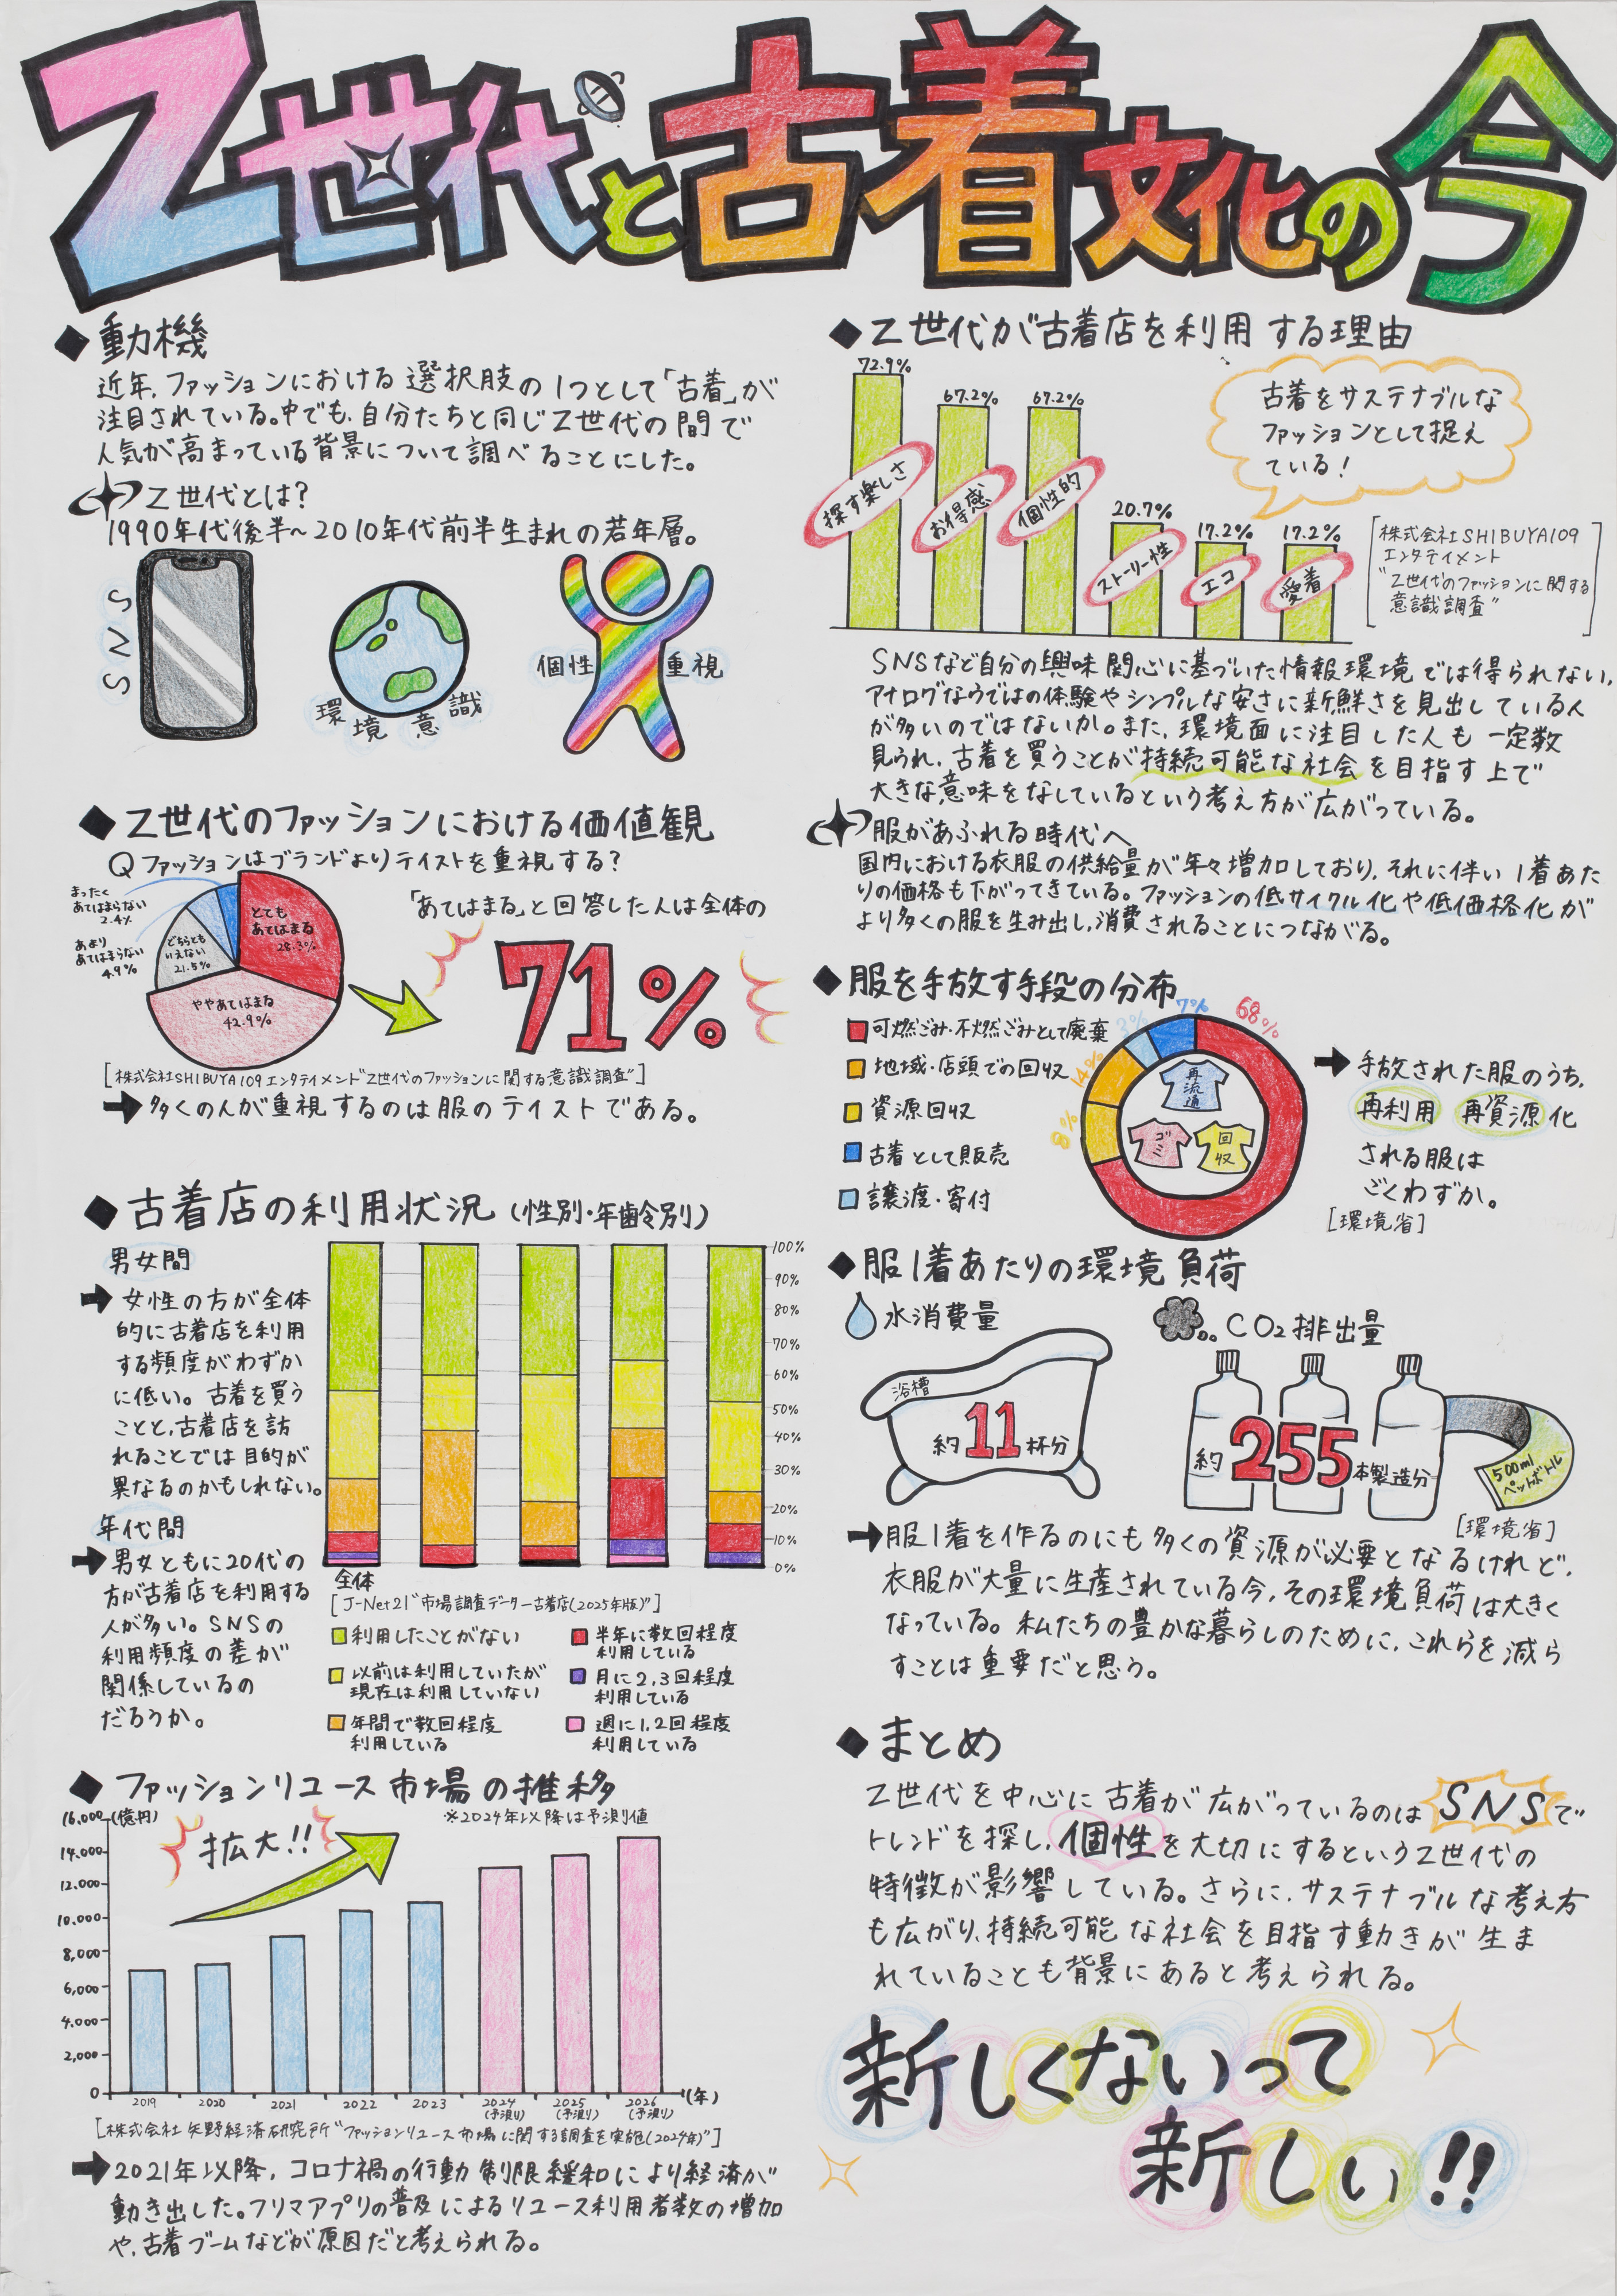 Z世代と古着文化の今
◆動機
近年、ファッションにおける選択肢の1つとして「古着」が
注目されている。中でも、自分たちと同じZ世代の間で
人気が高まっている背景について調べることにした。
Z世代とは?
1990年代後半~2010年代前半生まれの若年層。
SNS
環境意識
個性重視
◆Z世代のファッションにおける価値観
Qファッションはブランドよりテイストを重視する?
まったく
あてはまらない
2.4%
あまり
あてはまらない
4.9%
どちらとも
いえない
21.5%
とても
あてはまる
28.3%
ややあてはまる
42.9%
「あてはまる」と回答した人は全体の
71%
[株式会社SHIBUYA109エンタテイメント"Z世代のファッションに関する意識調査"]
➡多くの人が重視するのは服のテイストである。
◆古着店の利用状況(性別・年齢別)
男女間
➡女性の方が全体
的に古着店を利用
する頻度がわずか
に低い。古着を買う
ことと、古着店を訪
れることでは目的が
異なるのかもしれない。
年代間
➡男女ともに20代の
方が古着店を利用する
人が多い。SNSの
利用頻度の差が
関係しているの
だろうか。
100%
90%
80%
70%
60%
50%
40%
30%
20%
10%
0%
全体
[J-Net21"市場調査データー古着店(2025年版)"]
利用したことがない
以前は利用していたが
現在は利用していない
年間で数回程度
利用している
半年に数回程度
利用している
月に2,3回程度
利用している
週に1,2回程度
利用している
◆ファッションリユース市場の推移
16,000(億円)
※2024年以降は予測値
拡大!!
14,000
12,000
10,000
8,000
6,000
4,000
2,000
0
2019 2020 2021 2022 2023 2024 2025 2026 (年)
(予測) (予測) (予測)
[株式会社矢野経済研究所"ファッションリユース市場に関する調査を実施(2024年)"]
➡2021年以降、コロナ禍の行動制限緩和により経済が
動き出した。フリマアプリの普及によるリユース利用者数の増加
や、古着ブームなどが原因だと考えられる。
◆Z世代が古着店を利用する理由
72.9%
67.2%
67.2%
20.7%
17.2%
17.2%
探す楽しさ
お得感
個性的
ストーリー性
エコ
愛着
古着をサステナブルな
ファッションとして捉え
ている!
[株式会社SHIBUYA109
エンタテイメント
"Z世代のファッションに関する
意識調査"]
SNSなど自分の興味関心に基づいた情報環境では得られない、
アナログならではの体験やシンプルな安さに新鮮さを見出している人
が多いのではないか。また、環境面に注目した人も一定数
見られ、古着を買うことが持続可能な社会を目指す上で
大きな意味をなしているという考え方が広がっている。
服があふれる時代へ
国内における衣服の供給量が年々増加しており、それに伴い1着あた
りの価格も下がってきている。ファッションの低サイクル化や低価格化が
より多くの服を生み出し、消費されることにつながる。
◆服を手放す手段の分布
可燃ごみ・不燃ごみとして廃棄
地域・店頭での回収
資源回収
古着として販売
譲渡・寄付
68%
7%
3%
14%
8%
再流通
ゴミ
回収
➡手放された服のうち、
再利用 再資源化
される服は
ごくわずか。
[環境省]
◆服1着あたりの環境負荷
水消費量
浴槽
約11杯分
CO2排出量
約255本製造分
500ml
ペットボトル
[環境省]
➡服1着を作るのにも多くの資源が必要となるけれど、
衣服が大量に生産されている今、その環境負荷は大きく
なっている。私たちの豊かな暮らしのために、これらを減ら
すことは重要だと思う。
◆まとめ
Z世代を中心に古着が広がっているのはSNSで
トレンドを探し、個性を大切にするというZ世代の
特徴が影響している。さらに、サステナブルな考え方
も広がり、持続可能な社会を目指す動きが生ま
れていることも背景にあると考えられる。
新しくないって
新しい!!